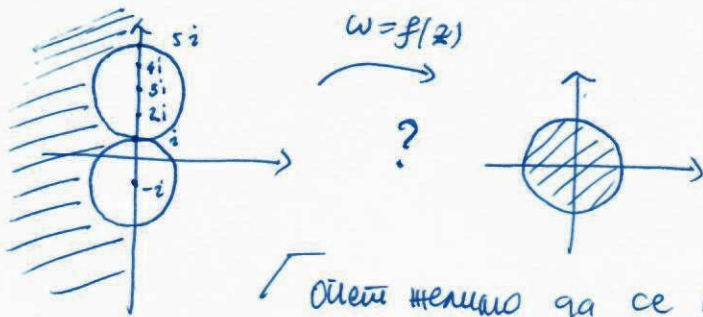 5i
4i
3i
2i
i
-i
ω=f(z)
?
опет желимо да се